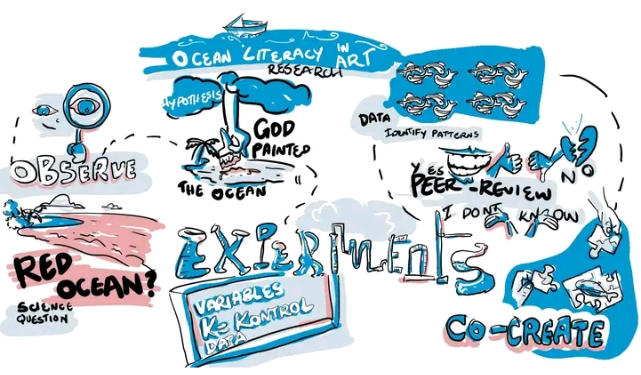 OCEAN LITERACY IN ART
RESEARCH
OBSERVE
RED OCEAN?
SCIENCE
QUESTION
HYPOTHESIS
GOD
PAINTED
THE OCEAN
EXPERIMENTS
VARIABLES
K= KONTROL
DATA
DATA
IDENTIFY PATTERNS
YES
PEER-REVIEW
NO
I DONT KNOW
CO-CREATE